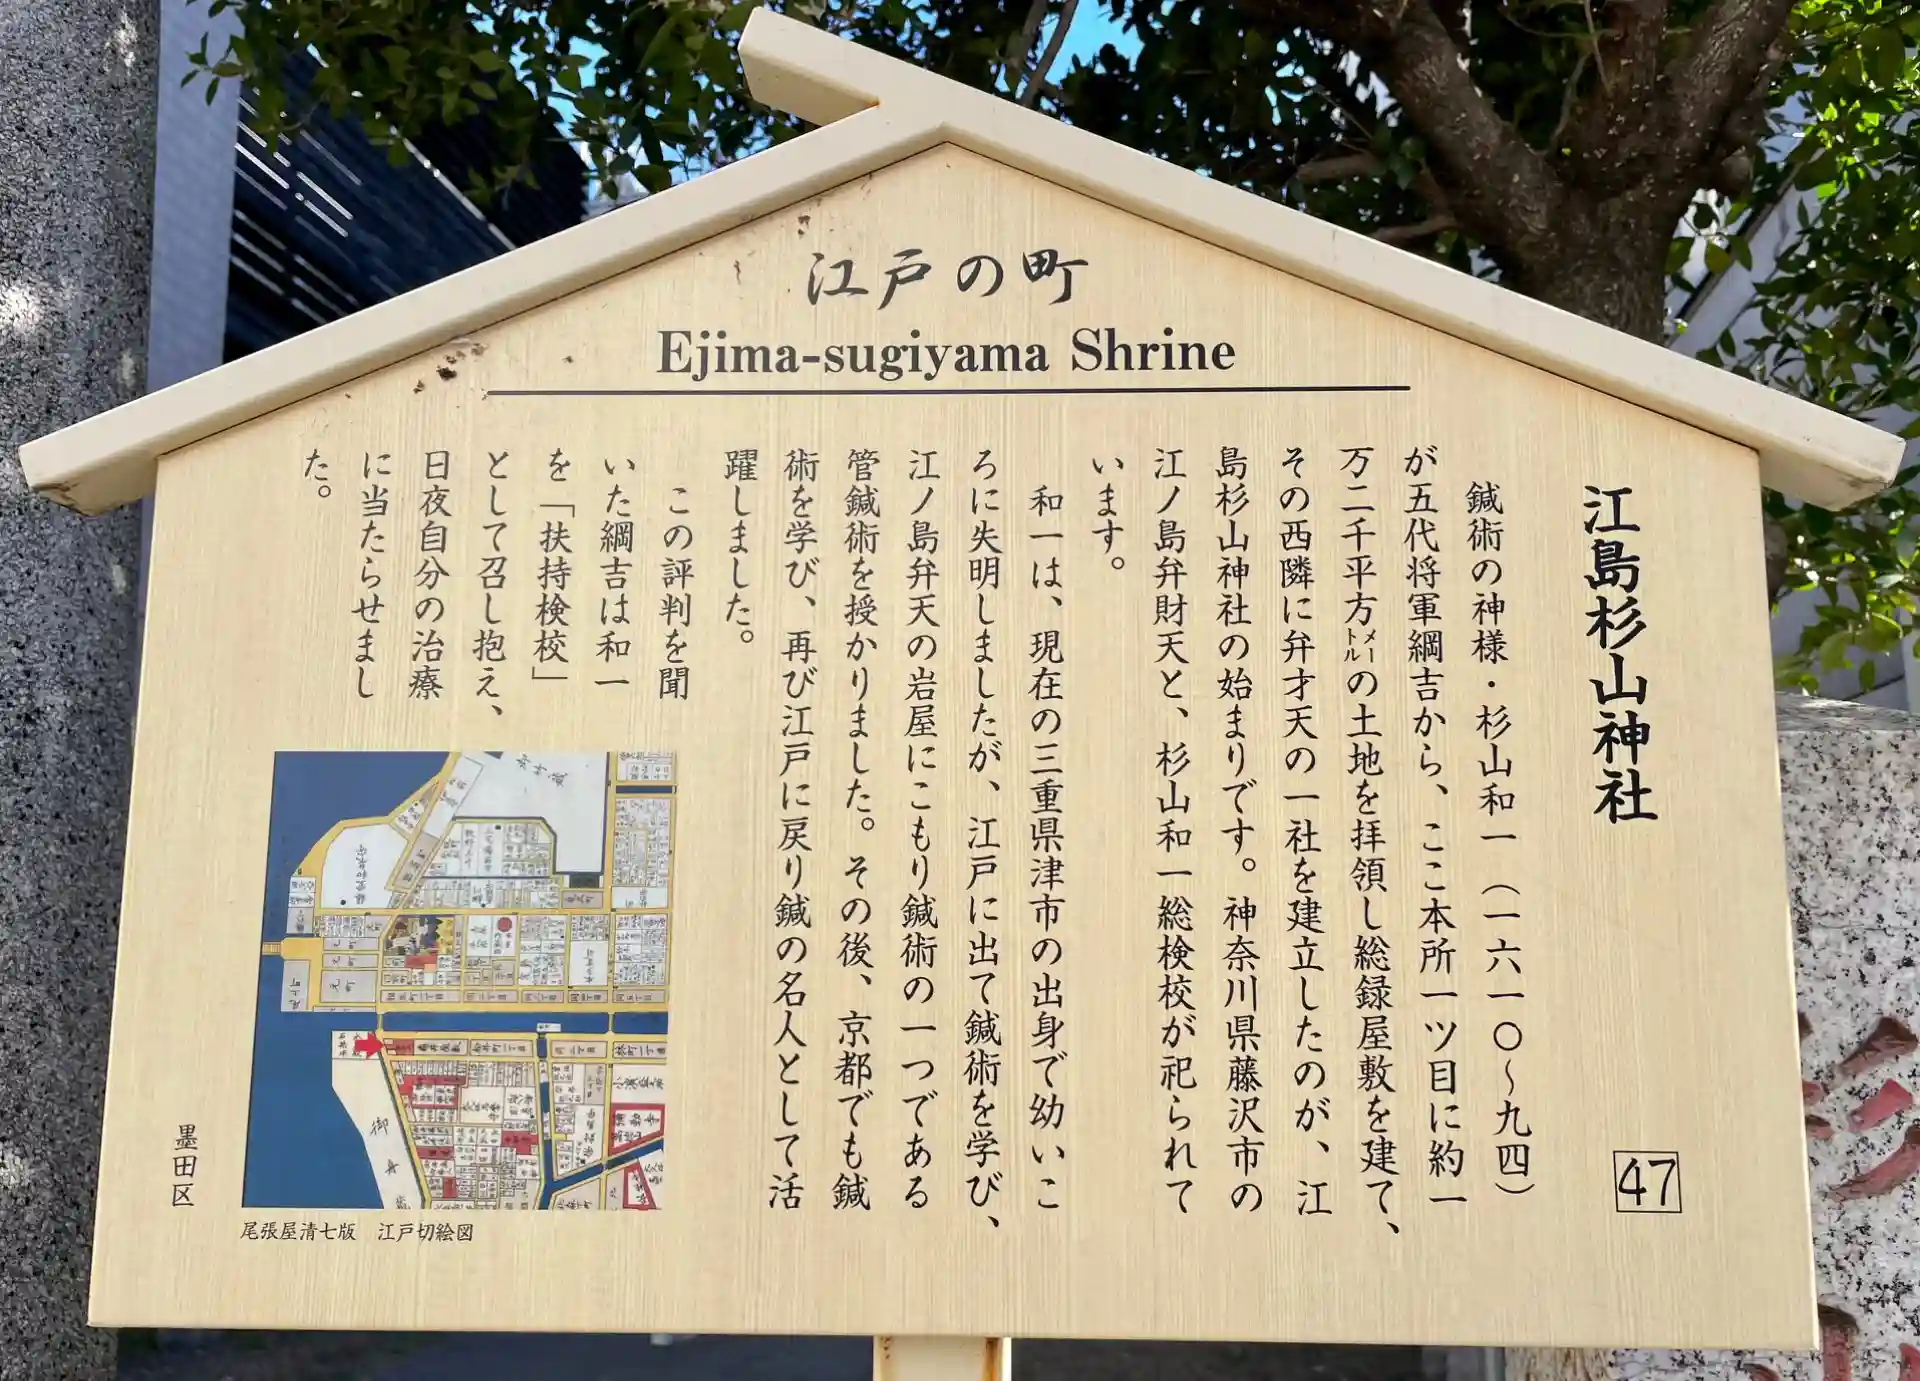 江戸の町
Ejima-sugiyama Shrine
江島杉山神社
47
鍼術の神様・杉山和一（一六一〇～九四）
が五代将軍綱吉から、ここ本所一ツ目に約一
万二千平方メートルの土地を拝領し総録屋敷を建て、
その西隣に弁才天の一社を建立したのが、江
島杉山神社の始まりです。神奈川県藤沢市の
江ノ島弁財天と、杉山和一総検校が祀られて
います。
和一は、現在の三重県津市の出身で幼いこ
ろに失明しましたが、江戸に出て鍼術を学び、
江ノ島弁天の岩屋にこもり鍼術の一つである
管鍼術を授かりました。その後、京都でも鍼
術を学び、再び江戸に戻り鍼の名人として活
躍しました。
この評判を聞
いた綱吉は和一
を「扶持検校」
として召し抱え、
日夜自分の治療
に当たらせまし
た。
尾張屋清七版　江戸切絵図
墨田区